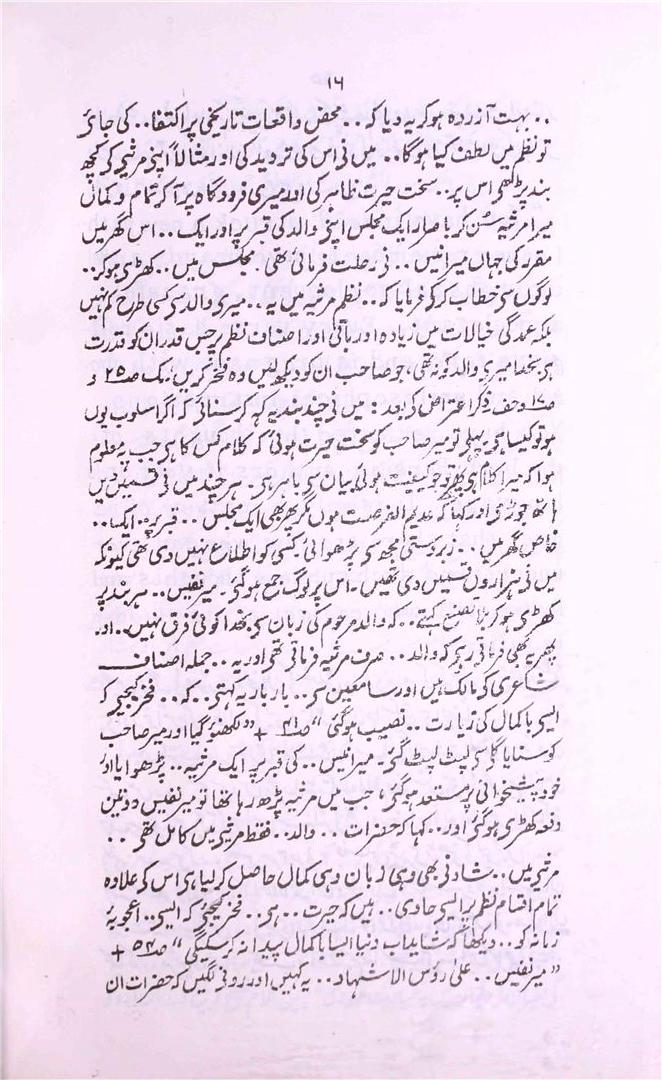 ۱۶
۰۰ بہت آزردہ ہوکر یہ دیا کہ ۰۰ محض واقعات تاریخی پر اکتفا ۰۰ کی جائے
تو نظم میں لطف کیا ہوگا ۰۰ میں نی اس کی تردید کی اور مثالاً اپنی مرثیہ کی کچھ
بند پڑھی اس پر ۰۰ سخت حیرت ظاہر کی اور میری فرودگاہ پر آ کر تمام و کمال
میرا مرثیہ سُن کر باصرار ایک مجلس اپنی والد کی قبر پر اور ایک ۰۰ اس گھر میں
مقرر کی جہاں میرانیس ۰۰ نی رحلت فرمائی تھی۔ مجلس میں ۰۰ کھڑی ہوکر ۰۰
لوگوں سی خطاب کر کی فرمایا کہ ۰۰ نظم مرثیہ میں یہ ۰۰ میری والد سی کسی طرح کم نہیں
بلکہ عمدگی خیالات میں زیادہ اور باقی اور اصناف نظم پر جس قدر ان کو قدرت
ہی بخدا میری والد کو نہ تھی، جو صاحب ان کو دیکھ لیں وہ فخر کریں؛ یک صـ ۲۵ و
صـ ۱۷ وحف ذکر اعتراض کی بعد: میں نی چند بند یہ کہہ کر سنائی کہ اگر اسلوب یوں
ہو تو کیسا ہی۔ پہلی تو میر صاحب کو سخت حیرت ہوئی کہ کلام کس کا ہی جب یہ معلوم
ہوا کہ میرا کلام ہی پھر تو جو کیفیت ہوئی بیان سی باہر ہی۔ ہر چند میں نی قسمیں دیں
ہاتھ جوڑی اور کہا کہ عدیم الفرصت ہوں مگر پھر بھی ایک مجلس ۰۰ قبر پر ایک ۰۰
خاص گھر میں ۰۰ زبردستی مجھ سی پڑھوائی۔ کسی کو اطلاع نہیں دی تھی کیونکہ
میں نی ہزاروں قسمیں دی تھیں۔ اس پر لوگ جمع ہوگئی۔ میرنفیس ۰۰ ہر بند پر
کھڑی ہوکر بلا تصنع کہتے ۰۰ کہ والد مرحوم کی زبان سی بخدا کوئی فرق نہیں ۰۰ اور
پھر یہ بھی فرماتی رہی کہ والد ۰۰ صرف مرثیہ فرماتی تھی اور یہ ۰۰ جملہ اصناف
شاعری کی مالک ہیں اور سامعین سی ۰۰ بار بار یہ کہتی ۰۰ کہ ۰۰ فخر کیجیی کہ
ایسی باکمال کی زیارت ۰۰ نصیب ہوگئی“ صـ ۴۱ + ”لکھنؤ گیا اور میر صاحب
کو سنایا گلی سی لپٹ لپٹ گئی۔ میرانیس ۰۰ کی قبر پر ایک مرثیہ ۰۰ پڑھوایا اور
خود پیشخوانی پر مستعد ہوگئی، جب میں مرثیہ پڑھ رہا تھا تو میر نفیس دو تین
دفعہ کھڑی ہوگئی اور ۰۰ کہا کہ حضرات ۰۰ والد ۰۰ فقط مرثیی میں کامل تھی ۰۰
مرثیی میں ۰۰ شاد نی بھی وہی زبان وہی کمال حاصل کرلیا ہی اس کی علاوہ
تمام اقسام نظم پر ایسی حاوی ۰۰ ہیں کہ حیرت ۰۰ ہی ۰۰ فخر کیجئی کہ ایسی ۰۰ اعجوبۂ
زمانہ کو ۰۰ دیکھا کہ شاید اب دنیا ایسا باکمال پیدا نہ کرسکیگی“ صـ ۵۴ +
”میرنفیس ۰۰ علیٰ رؤس الاشہاد ۰۰ یہ کہیں اور رونی لگیں کہ حضرات ان